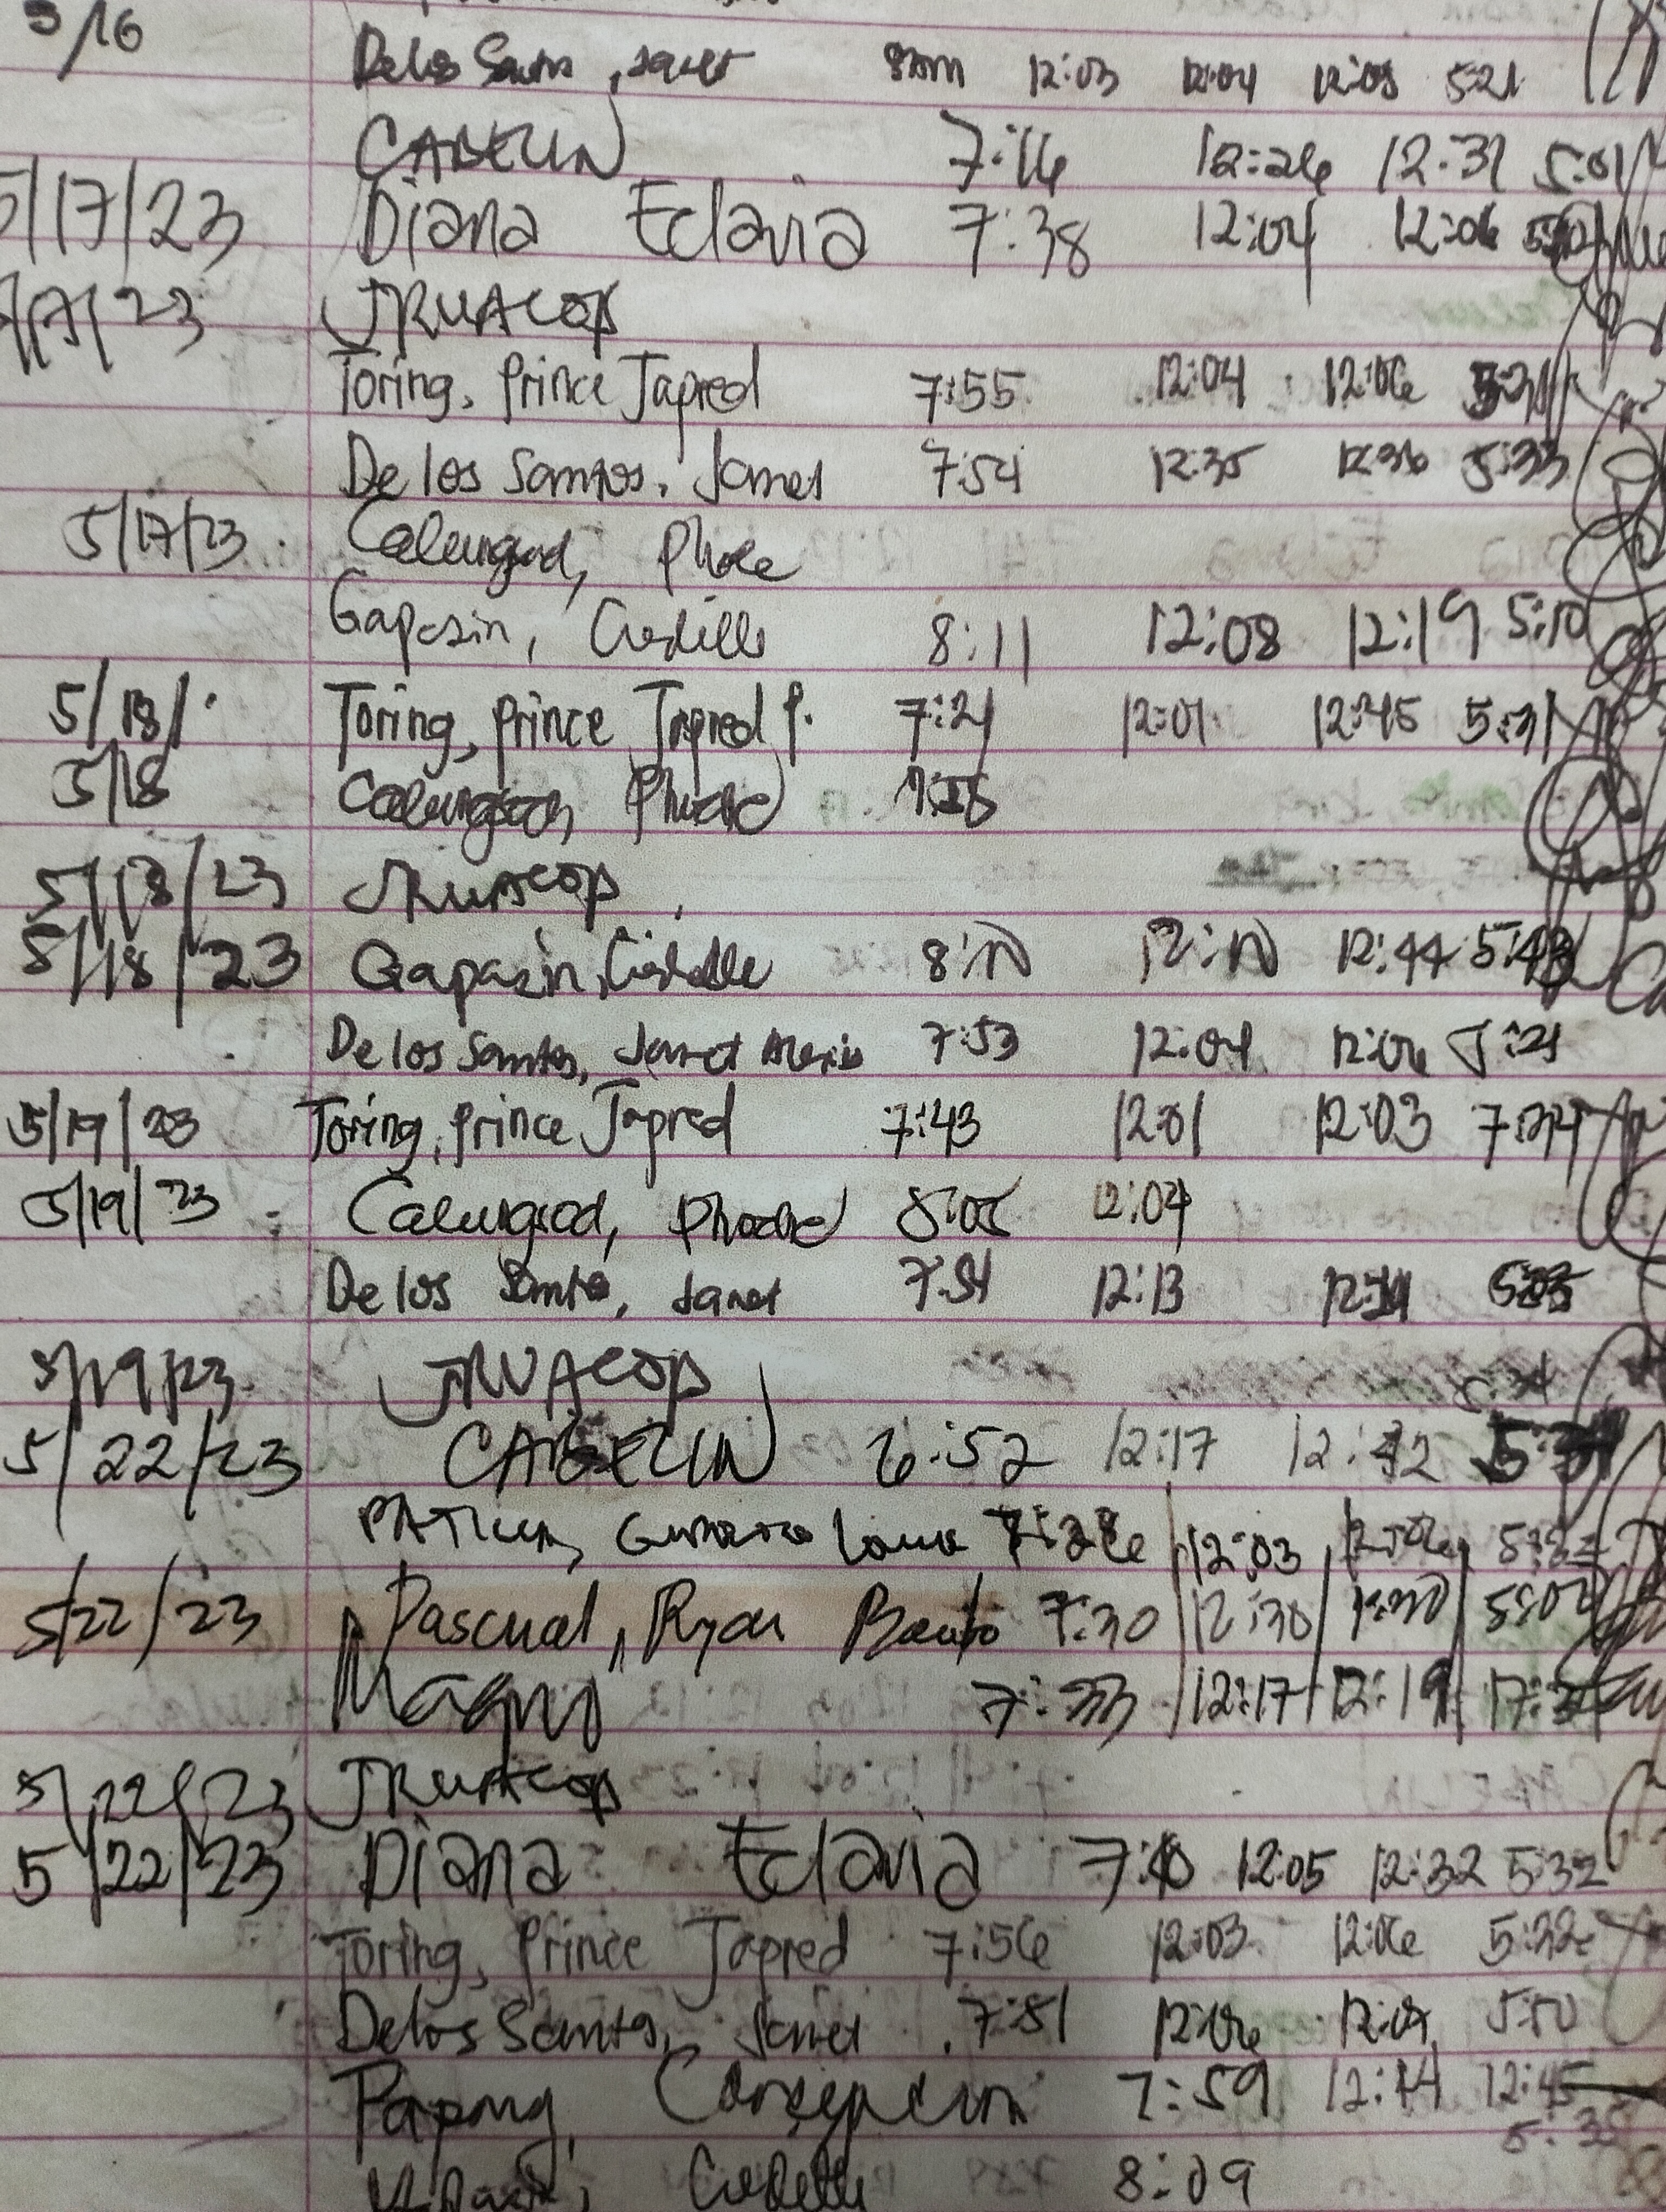 5/16
De los Santos, Janet 8:00am 12:03 12:04 12:05 5:21
CABELIN 7:16 12:26 12:31 5:01
5/17/23 Diana Eclavia 7:38 12:04 12:06
JRUACOP
Toring, Prince Japred 7:55 12:04 12:06
De los Santos, Janet 7:54 12:35 12:36 5:33
5/17/23 Calungsod, Phobe
Gapasin, Cristelle 8:11 12:08 12:19 5:10
5/18/ Toring, Prince Japred P. 7:21 12:01 12:45 5:31
5/18 Calungsod, Phoebe
5/18/23 JRUACOP
5/18/23 Gapasin, Cristelle 8:10 12:10 12:44 5:43
De los Santos, Janet Alexis 7:53 12:04 12:06 5:21
5/19/23 Toring, Prince Japred 7:43 12:01 12:03
5/19/23 Calungsod, Phoebe 8:05 12:04
De los Santos, Janet 7:51 12:13
5/19/23 JRUACOP
5/22/23 CABELIN 6:52 12:17
12:03
5/22/23 Pascual, Ryan 7:30 12:30 5:02
Magno 7:33 12:17 12:19
5/22/23 JRUACOP
5/22/23 Diana Eclavia 12:05 12:32 5:32
Toring, Prince Japred 7:56 12:03 12:06 5:32
Delos Santos, Janet 7:51 12:06 5:10
Papong, Concepcion 7:59 12:44 12:45
5:35
8:09